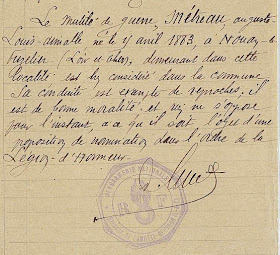 Le mutilé de guerre, Métreau auguste
Louis-aimable né le 4 avril 1883, à Nouan-le-
fuzelier (Loir et Cher), demeurant dans cette
localité est bien considéré dans la commune
Sa conduite est exempte de reproches; il
est de bonne moralité et rien ne s'oppose
pour l'instant, à ce qu'il soit l'objet d'une
proposition de nomination dans l'ordre de la
Légion-d'Honneur
GENDARMERIE NATIONALE
R F